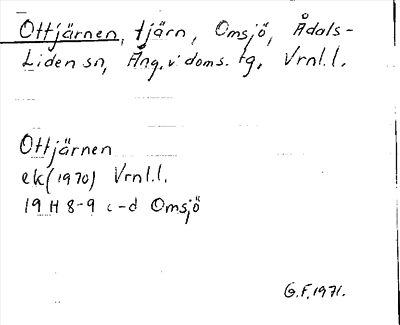 Ottjärnen, tjärn, Omsjö, Ådals-
Liden sn, Ång. v: doms. tg, Vrnl.l.
Ottjärnen
ek (1970) Vrnl.l.
19 H 8-9 c-d Omsjö
G.F. 1971.